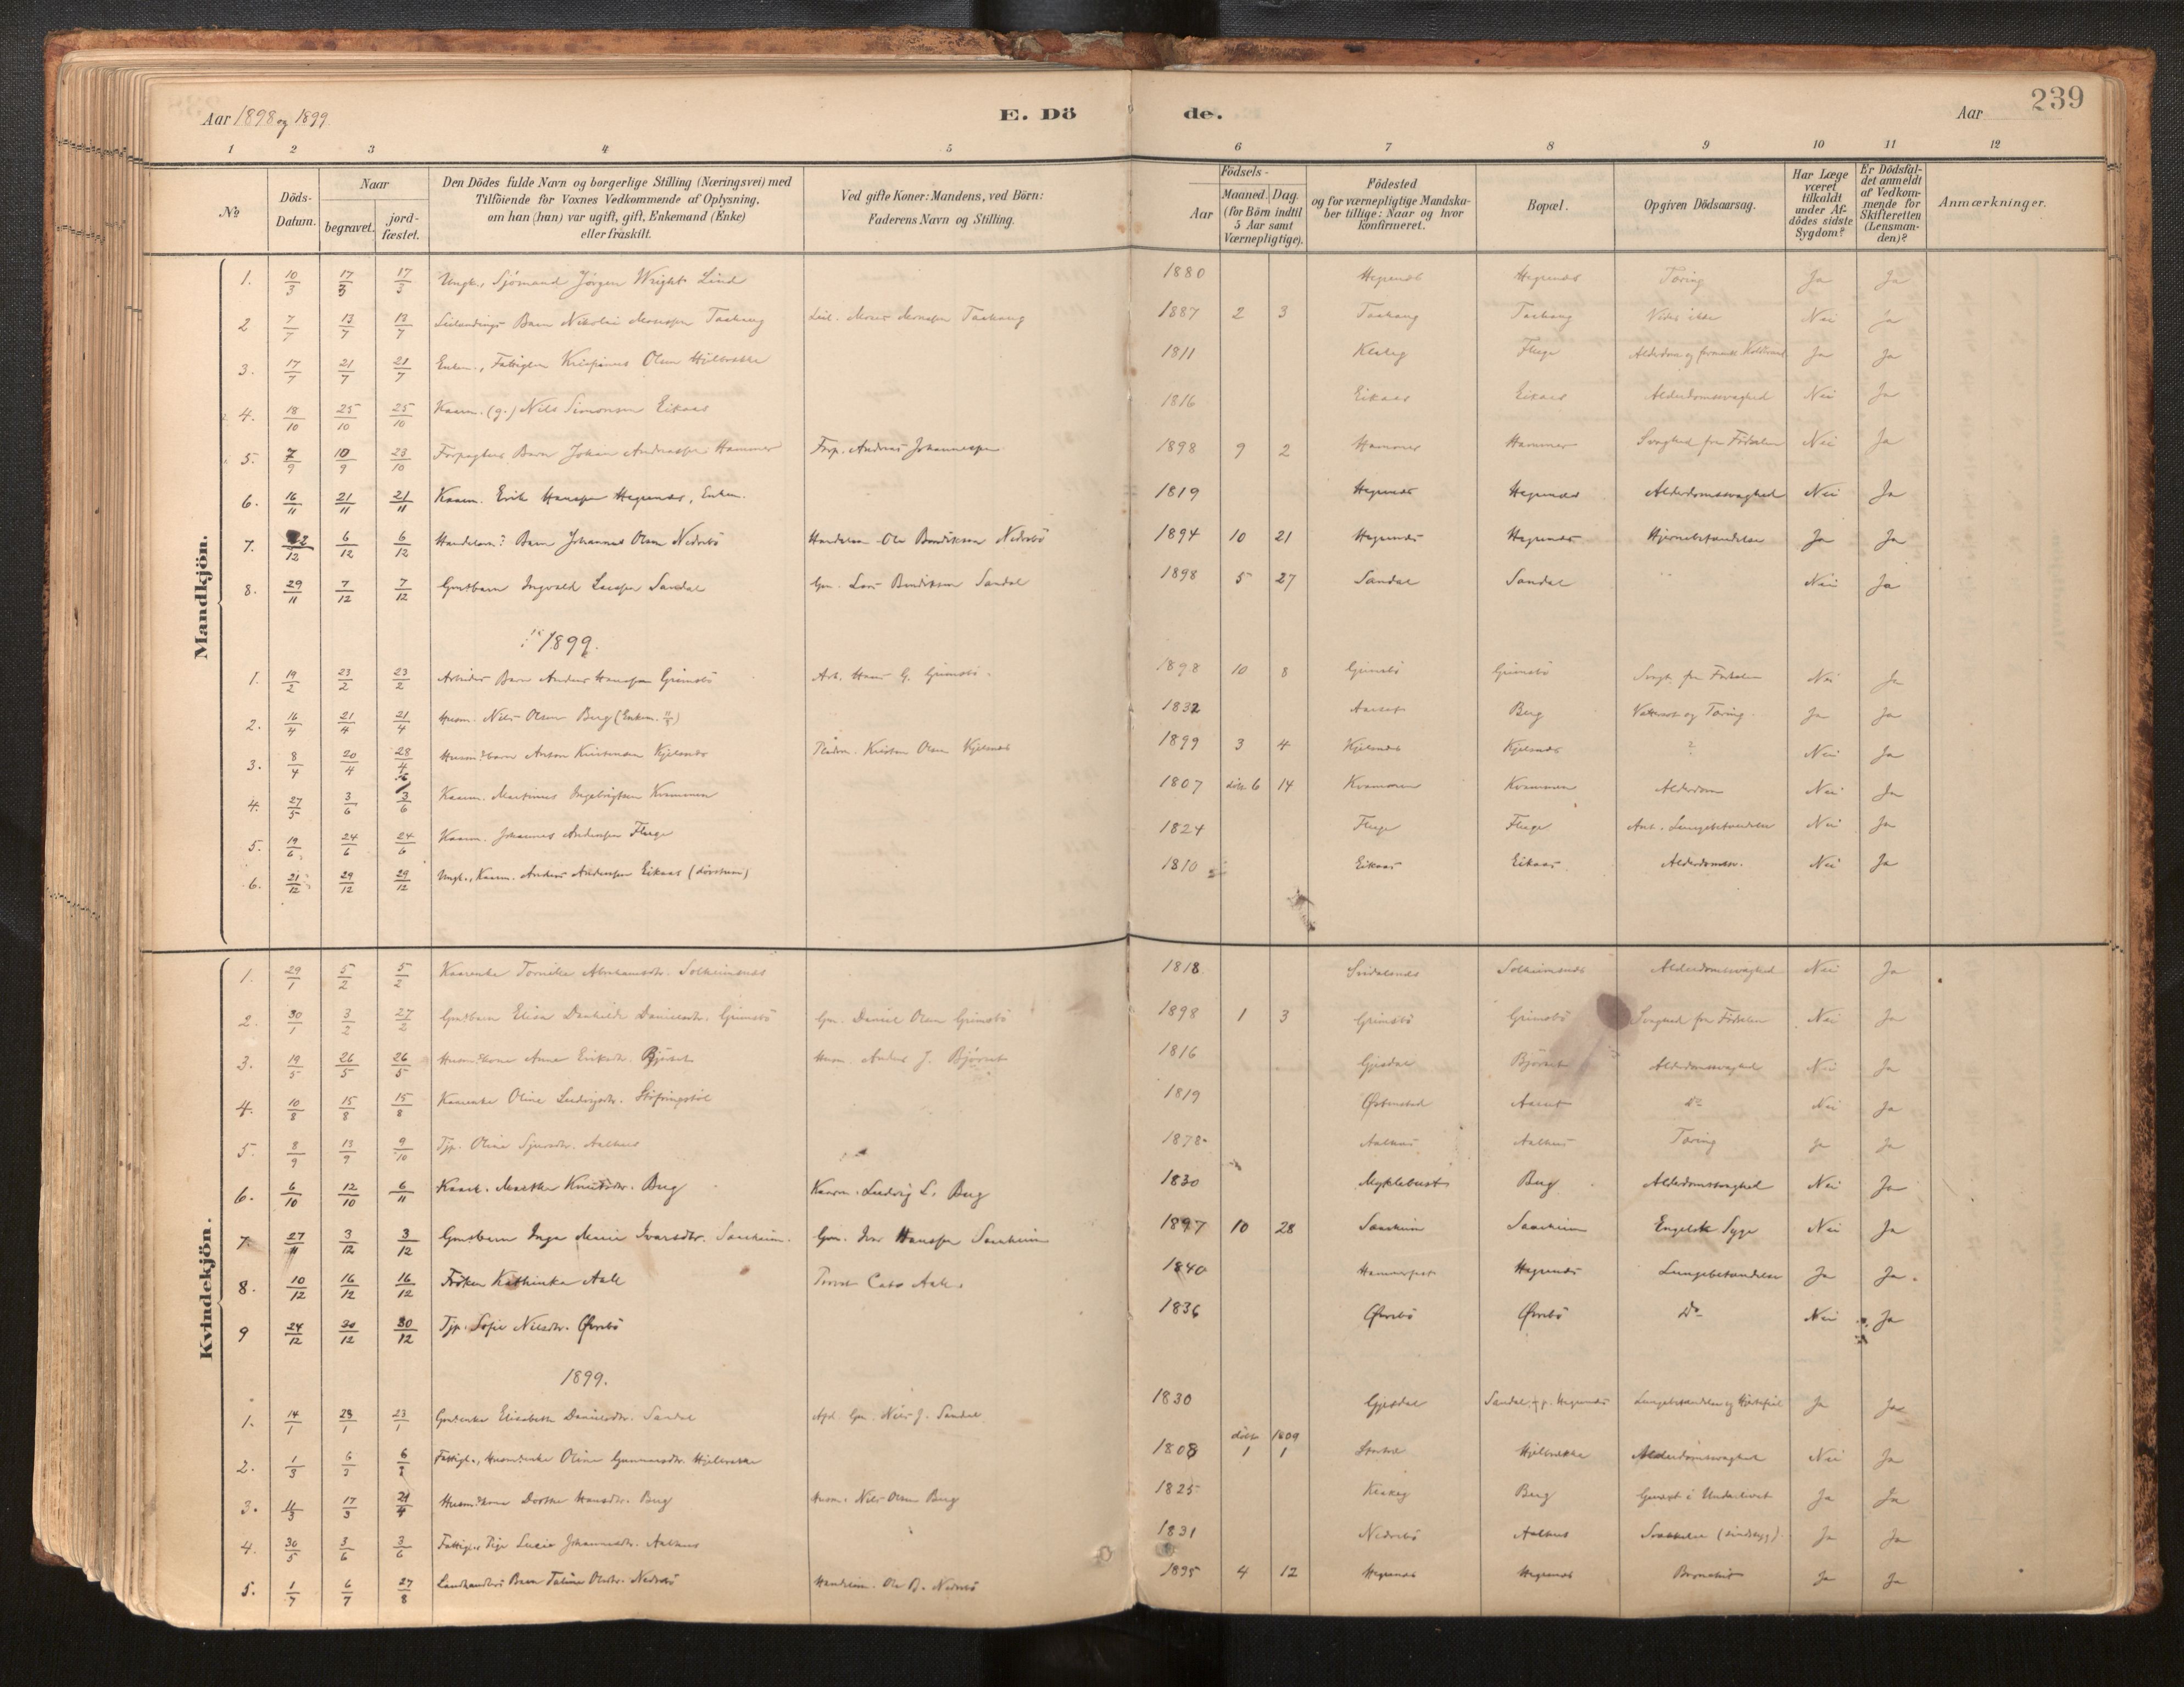 Aar 1898 og 1899.
E. Dö de.
Aar
239
1 2 3 4 5 6 7 8 9 10 11 12
No
Döds-Datum.
Naar
begravet.
jord-fæstet.
Den Dödes fulde Navn og borgerlige Stilling (Næringsvei) med
Tilföiende for Voxnes Vedkommende af Oplysning,
om han (hun) var ugift, gift, Enkemand (Enke)
eller fraskilt.
Ved gifte Koner: Mandens, ved Börn:
Faderens Navn og Stilling.
Födsels-
Aar
Maaned. Dag.
(for Börn indtil
5 Aar samt
Værnepligtige).
Födested
og for værnepligtige Mandska-
ber tillige: Naar og hvor
konfirmeret.
Bopæl.
Opgiven Dödsaarsag.
Har Læge
været
tilkaldt
under Af-
dödes sidste
Sygdom?
Er Dödsfal-
det anmeldt
af Vedkom-
mende for
Skifteretten
(Lensman-
den)?
Anmærkninger.
Mandkjön.
1. 10/3 17/3 17/3 Ungk., Sjömand Jörgen Wright Lind 1880 Hegrenæs Hegrenæs Tæring Ja Ja
2 7/7 13/7 13/7 Barn Nikolai Monssen Taahaug Monssen Taahaug 1887 2 3 Taahaug Taahaug Vides ikke Nei Ja
3. 17/7 21/7 21/7 Enkem., Olsen Hjelbrekke 1811 Fluge Alderdom og Ja Ja
4. 18/10 25/10 25/10 Kaarm. (g.) Nils Simonsen Eikaas 1816 Eikaas Eikaas Alderdomssvaghed Nei Ja
5. 7/9 10/9 23/10 Forpagters Barn Johan Andreassen Hammer Forp. Andreas Johannessen 1898 9 2 Hammer Hammer Svaghed fra Födselen Nei Ja
6. 16/11 21/11 21/11 Kaarm. Erik Hanssen Hegrenæs, Enkem. 1819 Hegrenæs Hegrenæs Alderdomssvaghed Nei Ja
7. 2/12 6/12 6/12 Barn Johannes Olsen Nedrebö Ole Bendiksen Nedrebö 1894 10 21 Hegrenæs Hegrenæs Hjernebetændelse Ja Ja
8. 29/11 7/12 7/12 Gmsbarn Ingvald Larssen Sandal Gm. Lars Bendiksen Sandal 1898 5 27 Sandal Sandal Nei Ja
1899.
1. 19/2 23/2 23/2 Arbeiders Barn Anders Hanssen Grimsbö Arb. Hans G. Grimsbö. 1898 10 8 Grimsbö Grimsbö Svagh. fra Födselen Nei Ja
2. 16/4 21/4 21/4 Husm. Nils Olsen Berg (Enkem.) 1832 Aaset Berg Vattersot og Tæring. Ja Ja
3. 8/4 20/4 28/4 Anton Kristensen Kjelsnæs Kristen Olsen Kjelsnæs 1899 3 4 Kjelsnæs Kjelsnæs ? Nei Ja
4. 27/5 3/6 3/6 Kaarm. Martinus Ingebrigtsen Kvammen 1807 döbt 6 14 Kvammen Kvammen Alderdom Nei Ja
5. 19/6 24/6 24/6 Kaarm. Johannes Anderssen Fluge 1824 Fluge Fluge Lungebetændelse Nei Ja
6. 21/12 29/12 29/12 Ungk., Kaarm. Anders Anderssen Eikaas (dövstum) 1810 Eikaas Eikaas Alderdomssv. Nei Ja
Kvindekjön.
1. 29/1 5/2 5/2 Kaarenke Abrahamsdtr. Solheimsnæs 1818 Solheimsnæs Alderdomssvaghed Nei Ja
2. 30/1 3/2 27/2 Gmsbarn Elisa Danielsdtr. Grimsbö Gm. Daniel Olsen Grimsbö 1898 1 3 Grimsbö Grimsbö Svaghed fra Födselen Nei Ja
3. 19/5 26/5 26/5 Anna Eriksdtr. Björset Husm. Anders J. Björset 1816 Gjesdal Björset Alderdomssvaghed Nei Ja
4. 10/8 15/8 15/8 Kaarenke Oline Ludvigsdtr. 1819 Østenstad Aaset Do Nei Ja
5. 8/9 13/9 9/10 Tjp. Oline Sjursdtr. Aalhus 1878 Aalhus Aalhus Tæring Ja Ja
6. 6/10 12/10 6/11 Martha Knutsdtr. Berg Kaarm. Ludvig L. Berg 1830 Myklebust Berg Alderdomssvaghed Nei Ja
7. 27/11 3/12 3/12 Gmsbarn Inga Marie Ivarsdtr. Sanheim. Gm. Ivar Hanssen Sanheim 1897 10 28 Sanheim Sanheim Engelsk Syge Nei Ja
8. 10/12 16/12 16/12 Fröken Kathinka Aall Cato Aall. 1840 Hammerfest Hegrenæs Lungebetændelse Ja Ja.
9 24/12 30/12 30/12 Tjp. Sofie Nilsdtr. Øvrebö 1836 Øvrebö Øvrebö Do Nei Ja
1899.
1. 14/1 23/1 23/1 Elisabeth Danielsdtr. Sandal Afd. Gm. Nils J. Sandal 1830 Gjesdal Sandal, Hegrenæs Lungebetændelse og Hjertefeil Ja Ja
2. 1/3 6/3 6/3 Oline Gunnarsdtr. Hjelbrekke 1808 döbt 1809 1 1 Hjelbrekke Alderdomssvaghed Nei Ja
3. 11/3 17/3 21/4 Dorthe Hansdtr. Berg Husm. Nils Olsen Berg 1825 Berg i Underlivet Ja Ja
4. 30/5 3/6 3/6 Fattigl. Pige Lucie Johannesdtr. Aalhus 1831 Nedrebö Aalhus (sindssyg) Ja Ja
5. 1/7 6/7 27/8 Landhandlers Barn Olsdtr. Nedrebö Ole B. Nedrebö 1895 4 12 Hegrenæs Hegrenæs Bronchit Ja Ja